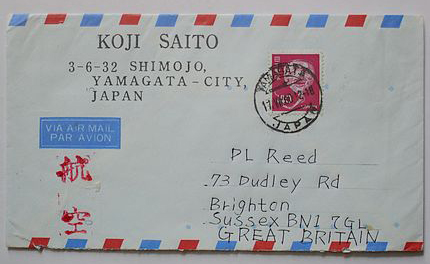 KOJI SAITO
3-6-32 SHIMOJO,
YAMAGATA-CITY,
JAPAN
YAMAGATA
JAPAN
VIA AIR MAIL
PAR AVION
航
空
DL Reed
73 Dudley Rd
Brighton
Sussex BN1 7GL
GREAT BRITAIN